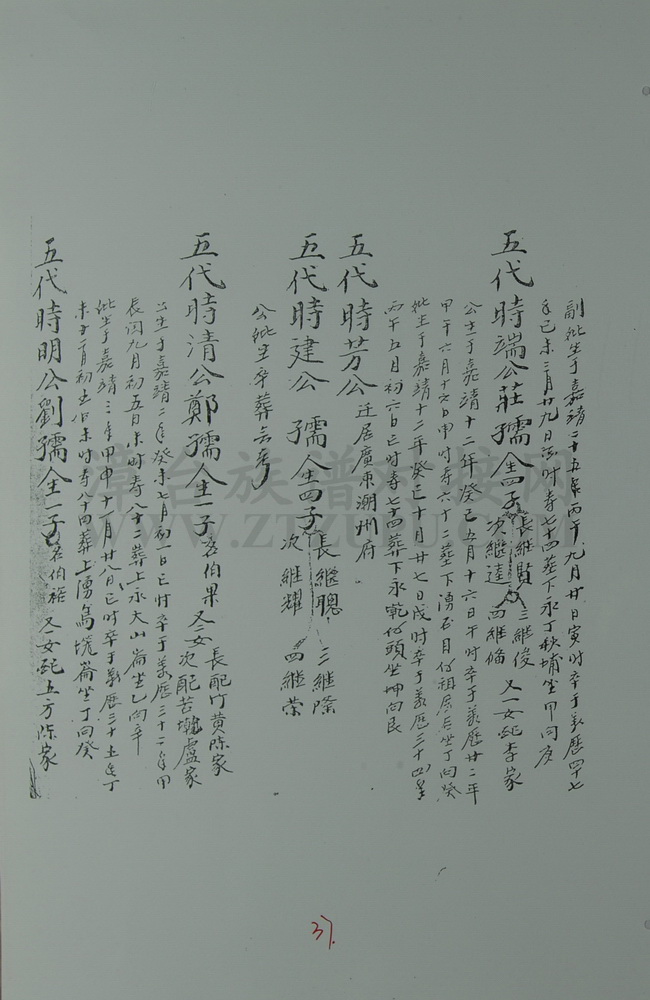 副妣生于嘉靖二十五年丙午九月廿日寅时卒于萬歷四十七
年己未二月廿九日 时寿七十四葬下永丁秧埔坐甲向庚
五代時端公莊孺人生四子 長継賢 次継達 三継俊 四継脩 又一女配李家
公生于嘉靖十二年癸巳五月十六日午时卒于萬歷廿二年
甲午六月十六日申时寿六十二葬下湧石目仔祖 坐丁向癸
妣生于嘉靖十二年癸巳十月廿七日戌时卒于萬歷三十四年
丙午五月初六日巳时寿七十四葬下永 仔頭坐坤向艮
五代時芳公 迁居廣東潮州府
五代時建公 孺人生四子 長継聰 次継耀 三継隆 四継荣
公妣生卒葬去考
五代時清公鄭孺人生一子 名伯果 又二女 長配竹黄陈家 次配苦壠盧家
公生于嘉靖二年癸未七月初一日巳时卒于萬歷三十二年甲
辰闰九月初五日未时寿八十二葬上永大山崙坐乙向辛
妣生于嘉靖三年甲申十一月廿八日巳时卒于萬歷三十五年丁
未 月初 日未时寿八十四葬上湧 崙坐丁向癸
五代時明公劉孺人生一子 名伯 又一女配五方陈家
37.
漳台族谱对接网
WWW.ZTZUPU.COM